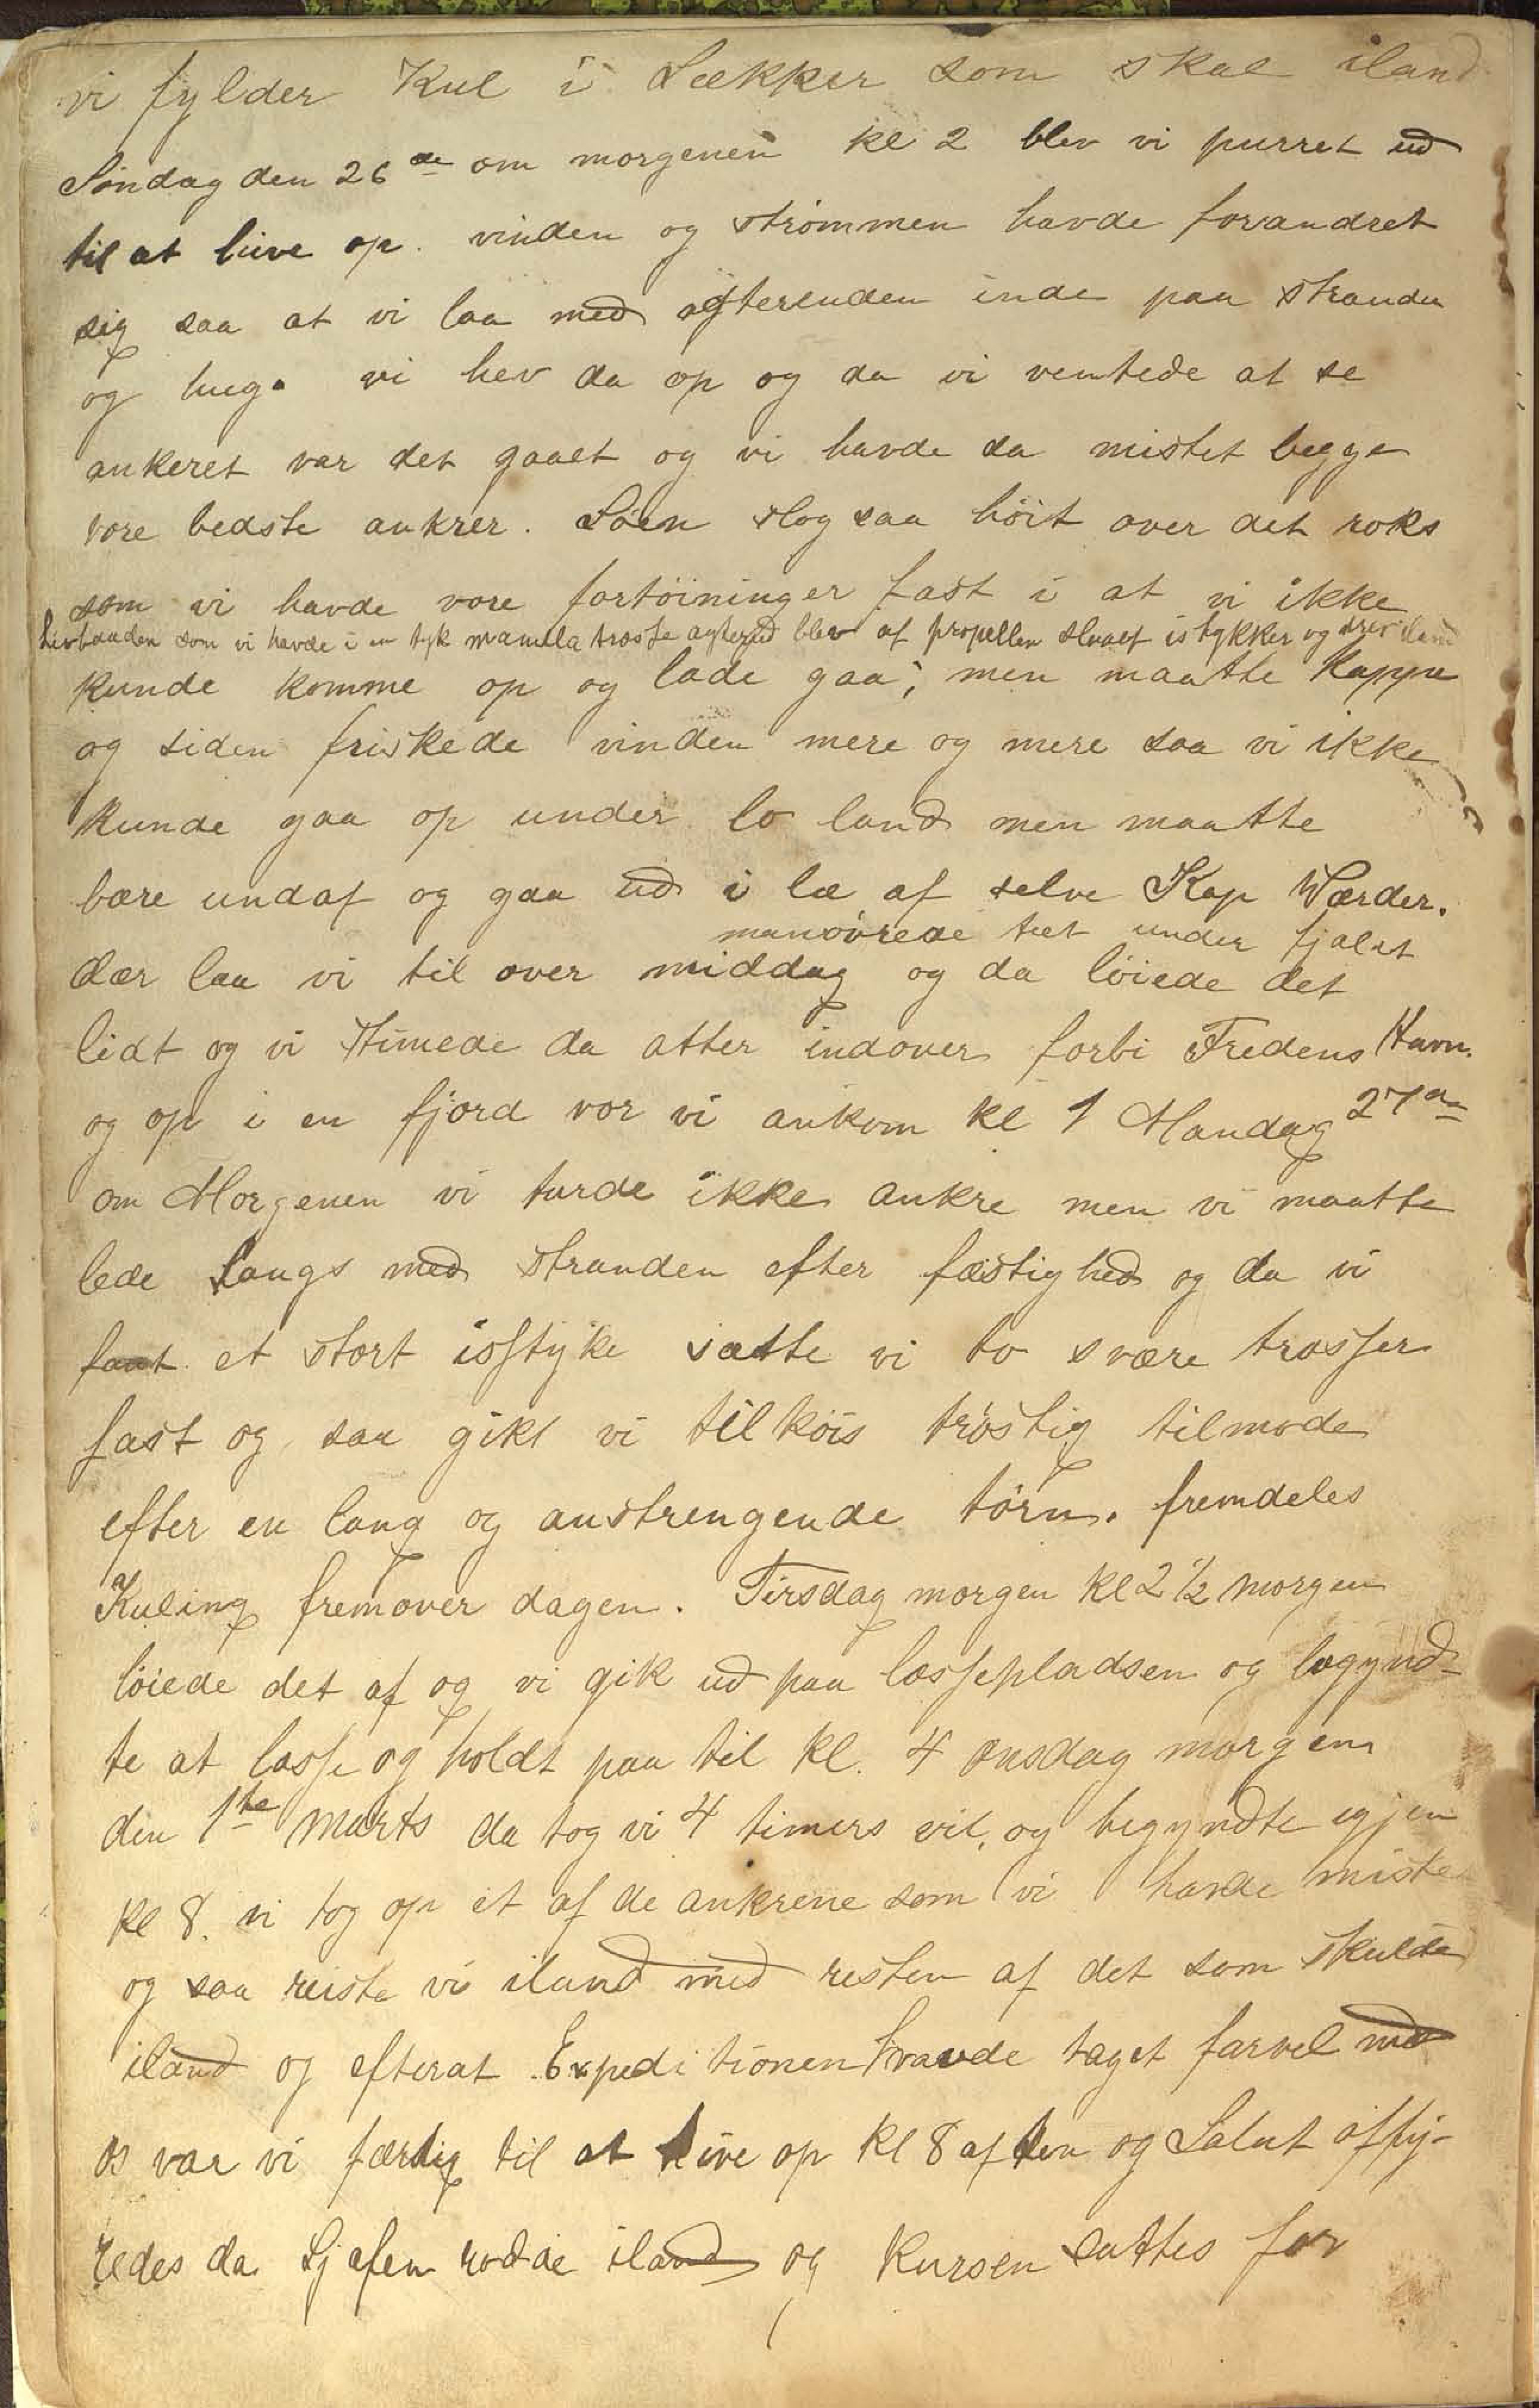 vi fylder Kul i Sækker som skal iland
Søndag den 26de om morgenen kl 2 blev vi purret ud
til at hive op. vinden og strømmen havde forandret
sig saa at vi laa med agterenden inde paa stranden
og hug. vi hev da op og da vi ventede at se
ankeret var det gaaet og vi havde da mistet begge
vore bedste ankrer. Søen slog saa høit over det roks
som vi havde vore fortøininger fast i at vi ikke
Livbaaden som vi havde i en tyk manilla trosse agterud blev af propellen slaaet istykker og drev iland
kunde komme op og lade gaa, men maatte kappe
og siden friskede vinden mere og mere saa vi ikke
kunde gaa op under lo land men maatte
bære undaf og gaa ud i læ af selve Kap Værder.
manøvrede tæt under fjelet
dær laa vi til over middag og da løiede det
lidt og vi stimede da atter indover forbi Fredens Havn.
og op i en fjord vor vi ankom kl 1 Mandag 27de
om Morgenen vi turde ikke ankre men vi maatte
lede langs med stranden efter fæstighed og da vi
fant et stort isstyke satte vi to svære trosser
fast og saa gikt vi tilkøis trøstig tilmode
efter en lang og anstrengende tørn. fremdeles
Kuling fremover dagen. Tirsdag morgen kl 2 1/2 morgen
løiede det af og vi gik ud paa lossepladsen og begynd-
te at losse og holdt paa til kl. 4 onsdag morgen
den 1te Marts da tog vi 4 timers vil, og begyndte igjen
kl 8. vi tog op et af de ankrene som vi havde miste
og saa reiste vi iland med resten af det som skulde
iland og efterat Expeditionen havde taget farvel med
os var vi færdig til at hive op kl 8 aften og Salut affy-
redes da Sjefen rodde iland og Kursen sattes for